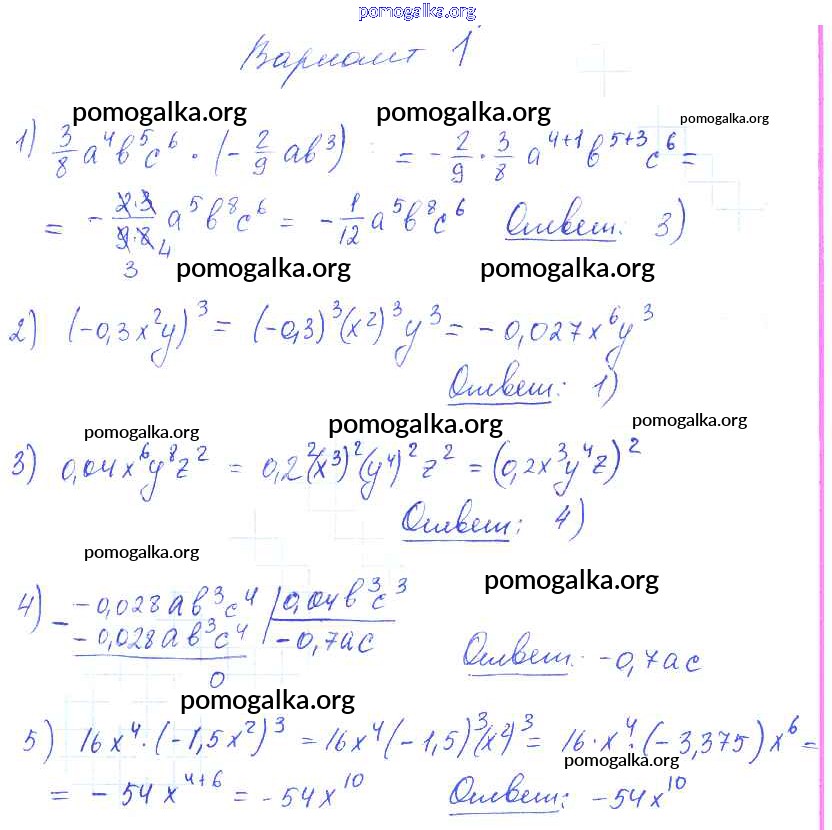 pomogalka.org
Вариант 1
pomogalka.org pomogalka.org pomogalka.org
1) 3/8 a⁴b⁵c⁶ · (-2/9 ab³) = -2/9 · 3/8 a⁴⁺¹b⁵⁺³c⁶ =
= - 2·3/9·8 a⁵b⁸c⁶ = -1/12 a⁵b⁸c⁶ Ответ: 3)
3 4
pomogalka.org pomogalka.org
2) (-0,3x²y)³ = (-0,3)³(x²)³y³ = -0,027x⁶y³
Ответ: 1)
pomogalka.org pomogalka.org pomogalka.org
3) 0,04x⁶y⁸z² = 0,2²(x³)²(y⁴)²z² = (0,2x³y⁴z)²
Ответ: 4)
pomogalka.org pomogalka.org
4) - -0,028ab³c⁴ | 0,04b³c³
-0,028ab³c⁴ | -0,7ac
0
Ответ: -0,7ac
pomogalka.org
5) 16x⁴·(-1,5x²)³ = 16x⁴(-1,5)³(x²)³ = 16·x⁴·(-3,375)x⁶ =
pomogalka.org
= -54x⁴⁺⁶ = -54x¹⁰ Ответ: -54x¹⁰